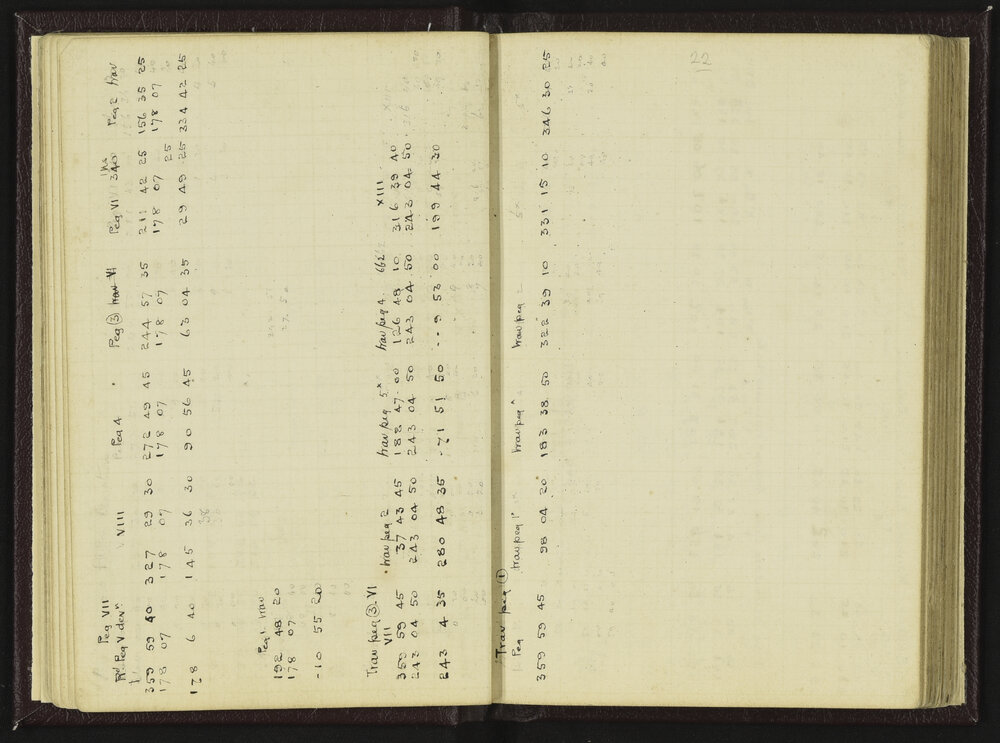 22
Peg VII
Peg V devn VIII Peg 4 Peg ③ trav VI Peg VI 340 Ins Peg 2 trav
359 59 40 327 29 30 272 49 45 244 57 35 211 42 25 156 35 25
178 07 178 07 178 07 178 07 178 07 25 178 07
178 6 40 145 36 30 90 56 45 63 04 35 29 49 25 334 42 25
38
Peg 1 trav
192 48 20
178 07
-10 55 20
Trav peg ③ VI trav peg 2 trav peg 5x trav peg 4 662 XIII
VII
359 59 45 37 43 45 188 47 00 126 48 10 316 39 40
243 04 50 243 04 50 243 04 50 243 04 50 243 04 50
243 4 35 280 48 35 71 51 50 9 53 00 199 44 30
Trav peg ①
Peg trav peg 1x trav peg trav peg 2
359 59 45 98 04 20 183 38 50 322 39 10 331 15 10 346 30 25